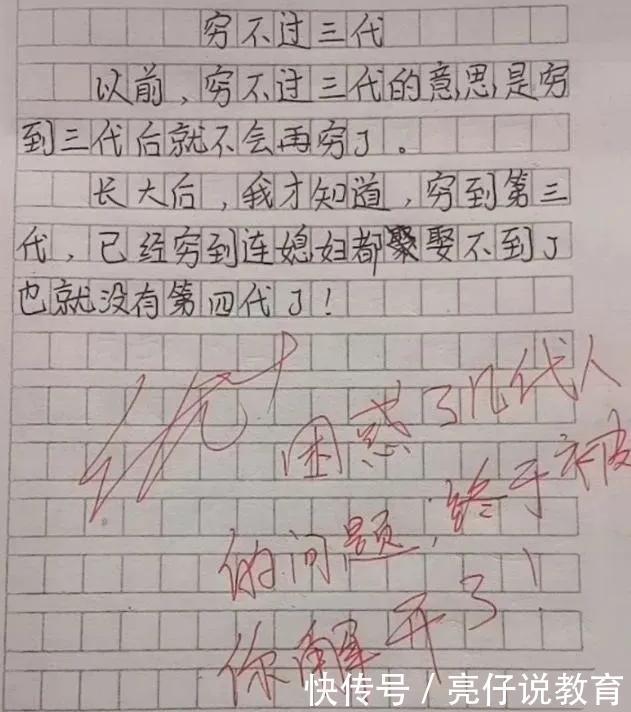 穷不过三代
以前，穷不过三代的意思是穷
到三代后就不会再穷了。
长大后，我才知道，穷到第三
代，已经穷到连媳妇都娶不到了
也就没有第四代了！
优+
困惑了几代人
的问题，终于被
你解开了！
快传号 / 亮仔说教育